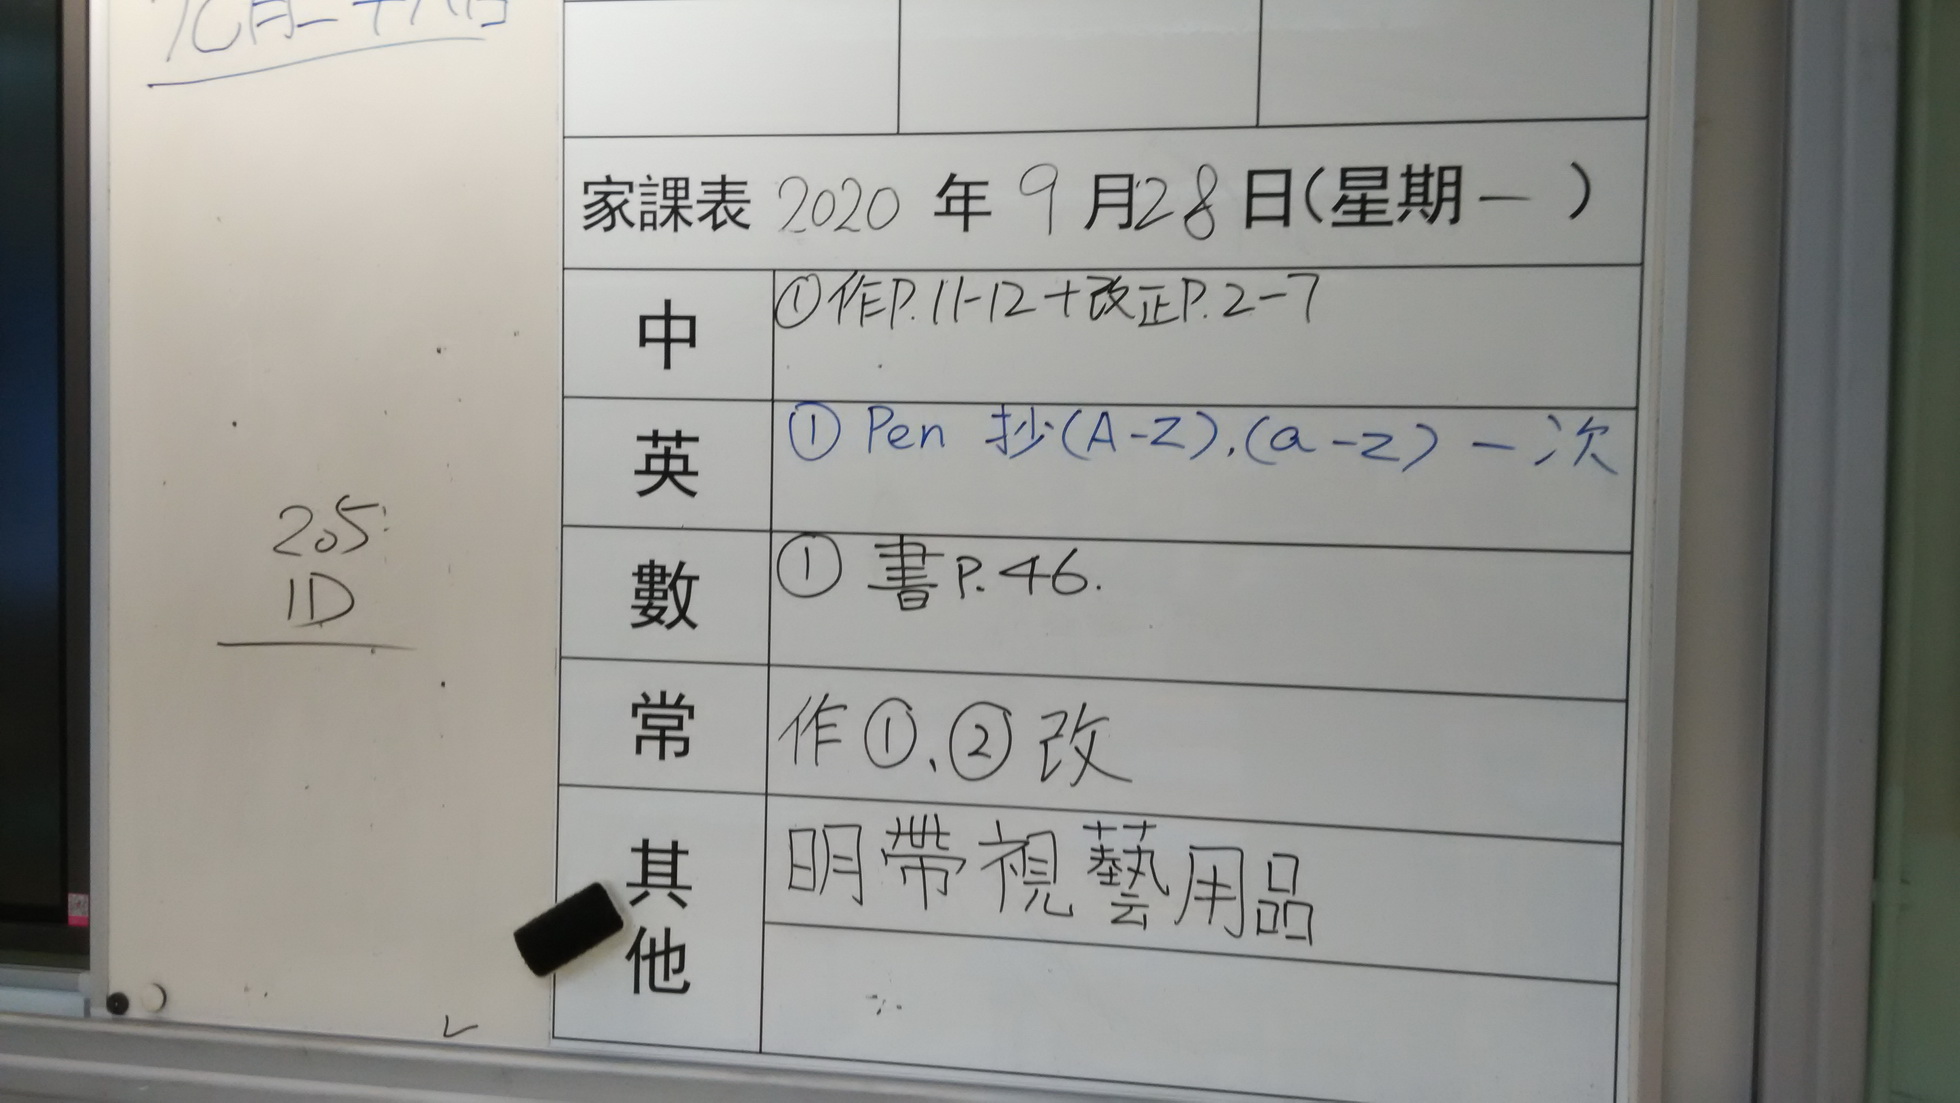 九月二十八日
家課表 2020 年 9 月 28 日(星期一 )
中 ①作P.11-12+改正P.2-7
英 ① Pen 抄(A-Z).(a-z) 一次
數 ① 書P.46.
常 作①、②改
其他 明帶視藝用品
205
1D